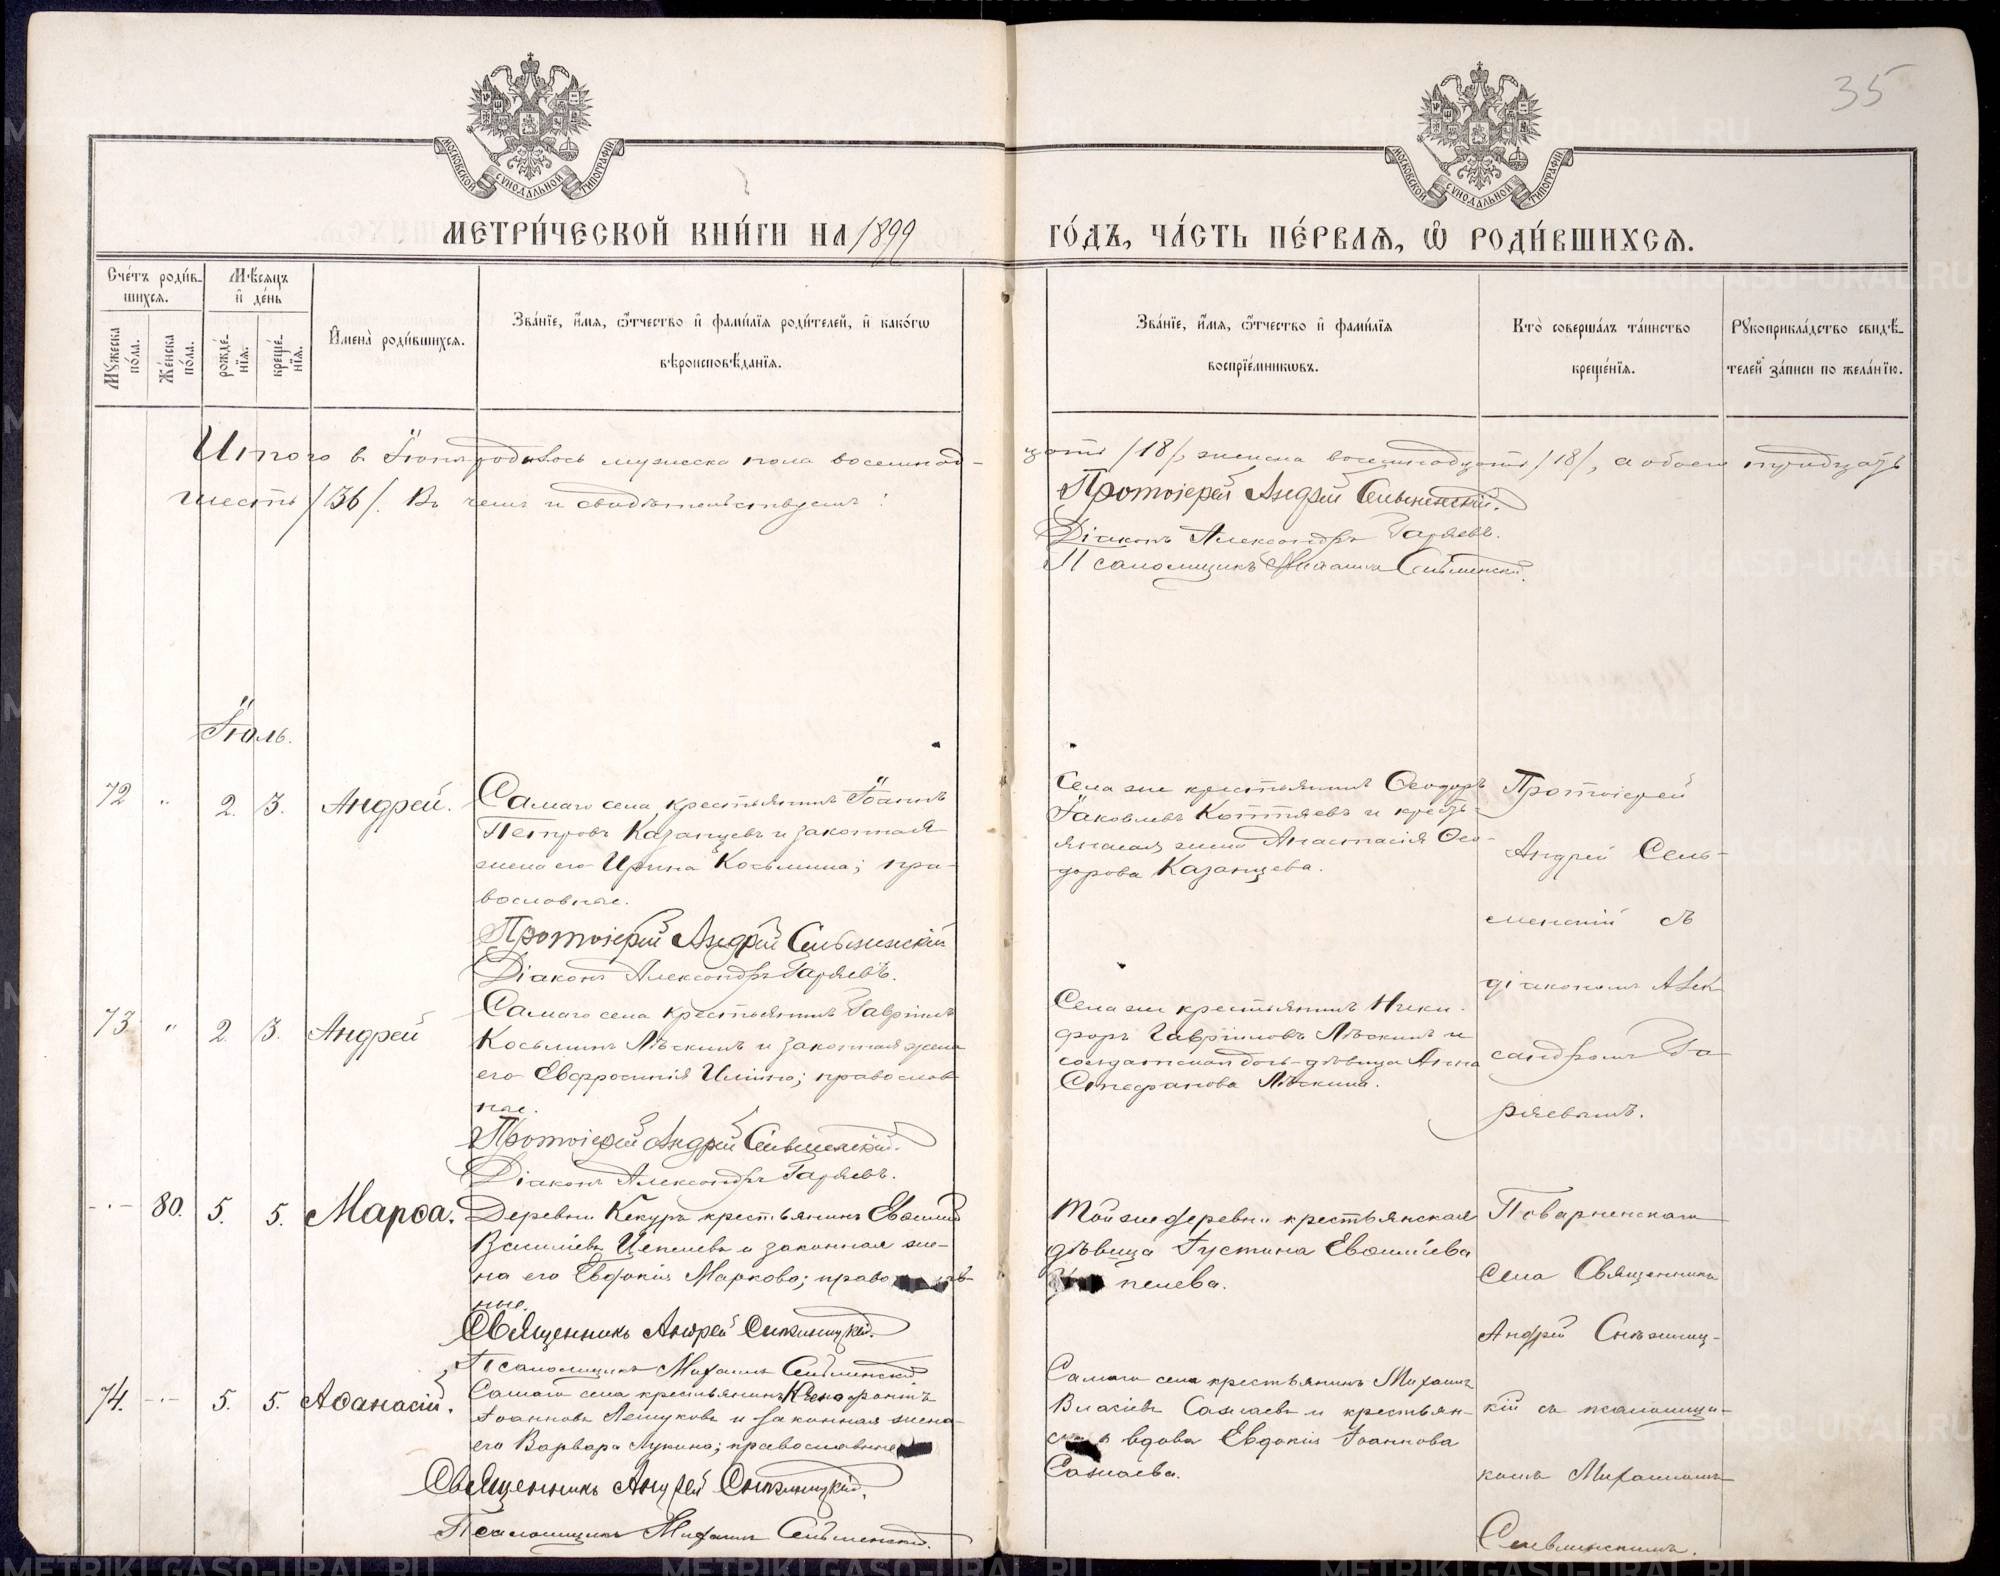 35
МОСКОВСКОЙ СѴНОДАЛЬНОЙ ТИПОГРАФІИ
МОСКОВСКОЙ СѴНОДАЛЬНОЙ ТИПОГРАФІИ
МЕТРИ́ЧЕСКОЙ КНИ́ГИ НА 1899
ГО́ДЪ, ЧА́СТЬ ПЕ́РВАЯ, Ѡ҆ РОДИ́ВШИХСЯ.
Сче́тъ роди́в-
шихся.
Мѣ́сяцъ
и҆ де́нь
Мꙋ́жеска по́ла.
Же́нска по́ла.
рожде́-нїя.
креще́-нїя.
И҆мена̀ роди́вшихся.
Зва́нїе, и҆́мя, ѻ҆́тчество и҆ фами́лїя роди́телей, и҆ како́гѡ
вѣроисповѣ́данїя.
Зва́нїе, и҆́мя, ѻ҆́тчество и҆ фами́лїя
воспрїе́мникѡвъ.
Кто̀ соверша́лъ та́инство
креще́нїя.
Рꙋкоприкла́дство свидѣ́-
телей за́писи по жела́нїю.
Итого въ Іюнѣ родилось мужеска пола восемнад-
цать /18/, женска восемнадцать /18/, а обоего тридцать
шесть /36/. Въ чемъ и свидѣтельствуемъ:
Протоіерей Андрей Сельменскій.
Діаконъ Александръ Гаряевъ.
Псаломщикъ Михаилъ Сельменскій.
Іюль.
72 " 2. 3. Андрей.
Самаго села крестьянинъ Іоаннъ
Петровъ Казанцевъ и законная
жена его Ирина Косьмина; пра-
вославные.
Протоіерей Андрей Сельменскій
Діаконъ Александръ Гаряевъ.
Села же крестьянинъ Ѳеодоръ
Іаковлевъ Коттяевъ и кресть-
янская жена Анастасія Ѳео-
дорова Казанцева.
Протоіерей
Андрей Сель-
менскій съ
діакономъ Алек
сандромъ Га-
ряевымъ.
73 " 2. 3. Андрей
Самаго села крестьянинъ Гавріилъ
Косьминъ Лѣскинъ и законная жена
его Евфросинія Ильина; православ-
ные.
Протоіерей Андрей Сельменскій.
Діаконъ Александръ Гаряевъ.
Села же крестьянинъ Ники-
форъ Гавріиловъ Лѣскинъ и
солдатская дочь-дѣвица Анна
Стефанова Лѣскина.
-·- 80. 5. 5. Марѳа.
Деревни Кекуръ крестьянинъ Евсигній
Васильевъ Цепелевъ и законная же-
на его Евдокія Маркова; право
ные.
Священникъ Андрей Снѣжницкій.
Псаломщикъ Михаилъ Сельменскій
Той же деревни крестьянская
дѣвица Іустина
пелева.
Поварненскаго
села Священникъ
Андрей Снѣжниц-
кій съ псаломщи-
комъ Михаиломъ
Сельменскимъ.
74. -·- 5. 5. Аѳанасій.
Самаго села крестьянинъ Ксенофонтъ
Іоанновъ Лешуковъ и законная жена
его Варвара Лукина; православные
Священникъ Андрей Снѣжницкій.
Псаломщикъ Михаилъ Сельменскій.
Самаго села крестьянинъ Михаилъ
Власіевъ Сажаевъ и крестьян-
вдова Евдокія Іоаннова
Сажаева.
METRIKI.GASO-URAL.RU